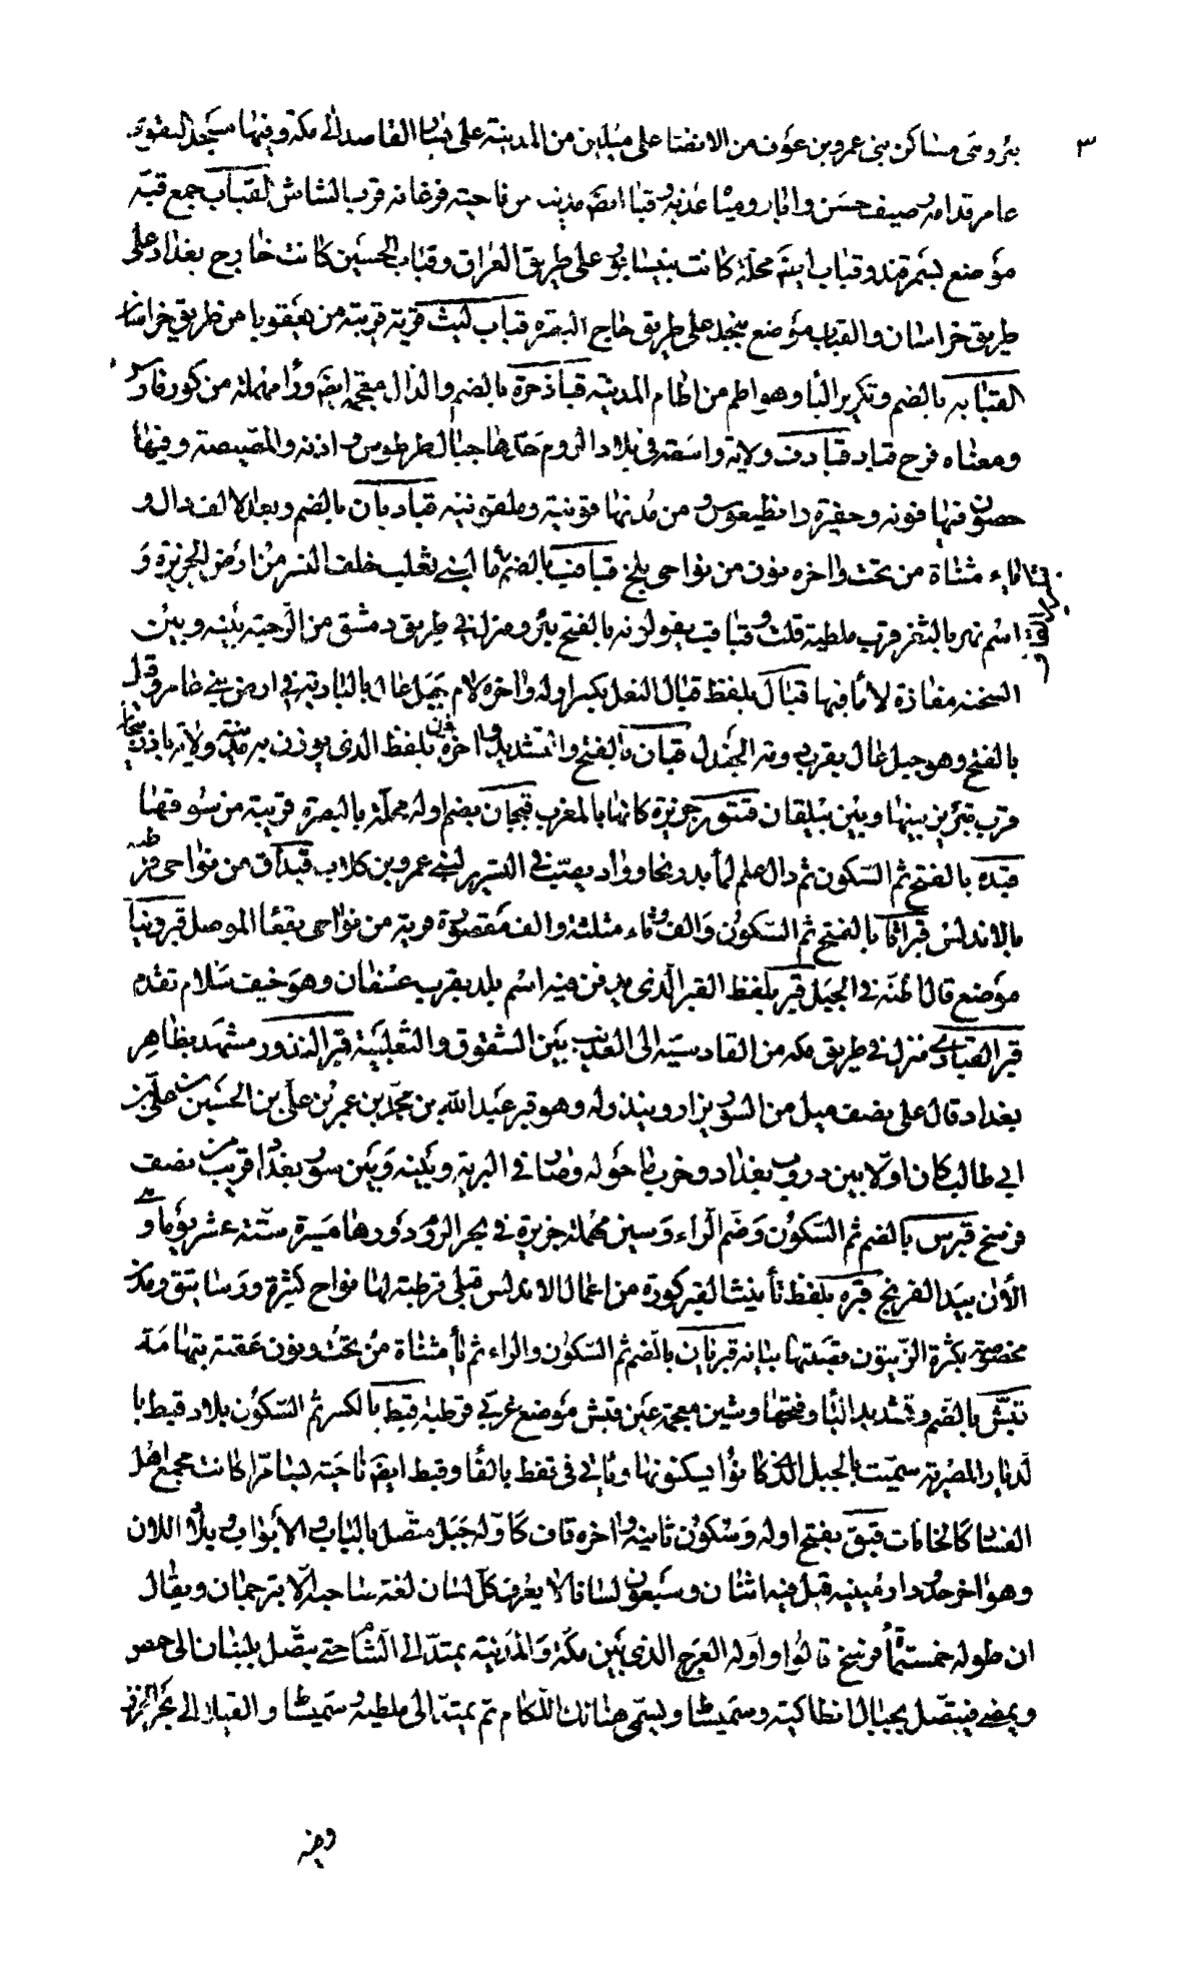 ٣
بئر وهى مساكن بنى عمرو بن عوف من الانصار على ميلين من المدينة على يسار القاصد الى مكة وفيها مسجد التقوى
عامر قدامه رصيف حسن وابار ومياه عذبة وقبا ايضا مدينه من ناحية فرغانه قرب الشاش القباب جمع قبة
موضع بسمرقند وقباب ايضا محلة كانت بنيسابور على طريق العراق وقباب الحسين كانت خارج بغداد على
طريق خراسان والقباب موضع بنجد على طريق حاج البصره قباب ليث قرية قريبة من بعقوبا من طريق خراسان
القبابه بالضم وتكرير البا وهو اطم من اطام المدينه قباذ خره بالضم والذال معجمه ايضا ورا مهملة من كور فارس
ومعناه فرح قباد قبادق ولاية واسعة فى بلاد الروم حدها جبال طرطوس واذنه والمصيصة وفيها
حصون منها قونه وحضره وانطيغوس ومن مدنها قونية وملقونيه قباديان بالضم وبعد الالف دال و
ياء مثناة من تحت واخره نون من نواحى بلخ قباقب بالضم ما لبنى تغلب خلف البشر من ارض الجزيرة و
اسم نهر بالثغر قرب ملطية قلت وقباقب يقولونه بالفتح بئر ومنزل فى طريق دمشق من الرحبة بينه وبين
السخنه مفازة لا ما فيها قبال بلفظ قبال النعل بكسر اوله واخره لام جبل عال بالبادية فى ارض بنى عامر وقيل
بالفتح وهو جبل عال بقرب دومة الجندل قبان بالفتح والتشديد واخره نون بلفظ الذى يوزن به مدينة وولاية باذربيجان
قرب تبريز بينها وبين بيلقان قبتور جزيرة كانها بالمغرب قبجان بضم اوله محلة بالبصرة قريبة من سوقها
قبده بالفتح ثم السكون ثم دال علم لما يدر نحاو واد يصب فى التسرير لبنى عمرو بن كلاب قبذاق من نواحى قرطبة
بالاندلس قبراثا بالفتح ثم السكون والف وثاء مثلثة والف مقصورة قرية من نواحى بقعا الموصل قبرونيا
موضع قال اظنه فى الجبل قبر بلفظ القبر الذى يدفن فيه اسم بلد بقرب عسفان وهو خيف سلام تقدم
قبر العبادى منزل فى طريق مكه من القادسية الى العذيب بين الشقوق والثعلبية قبر النذور مشهد بظاهر
بغداد قال على نصف ميل من السور يزار وينذر له وهو قبر عبيد الله بن محمد بن عمر بن على بن الحسين بن على بن
ابى طالب كان اولا بين دروب بغداد وخرب ما حوله وصار فى البرية وبينه وبين سور بغداد قريب من نصف
فرسخ قبرس بالضم ثم السكون وضم الراء وسين مهملة جزيرة فى بحر الروم ودورها مسيرة ستة عشر يوما وهى
الآن بيد الفرنج قبره بلفظ تأنيث القبر كورة من اعمال الاندلس قبلى قرطبة لها نواح كثيرة ورساتيق ومدن
مخصوصة بكثرة الزيتون قصبتها بيانه قبريان بالضم ثم السكون والراء ثم يا مثناة من تحت ونون عقبة بتهامة
قبش بالضم وتشديد البا وفتحها وشين معجمة عين قبش موضع غربى قرطبة قبط بالكسر ثم السكون بلاد قبط با
لديار المصرية سميت بالجيل الذى كانوا يسكنونها وياتى فى قفط بالفا وقبط ايضا ناحية بسامرا كانت مجمع اهل
الفساد كالحانات قبق بفتح اوله وسكون ثانيه واخره قاف كاوله جبل متصل بالباب والابواب وبلاد اللان
وهو اخر حدود ارمينيه قيل فيه اثنان وسبعون لسانا لا يعرف كل لسان لغة صاحبه الا بترجمان ويقال
ان طوله خمسمائة فرسخ قالوا واوله العرج الذى بين مكة والمدينة يمتد الى الشام حتى يتصل بلبنان الى حمص
ويمضى فيتصل بجبال انطاكية وسميساط ويسمى هنالك اللكام ثم يمتد الى ملطيه وسميساط وقاليقلا الى بحر الخزر
وفيه